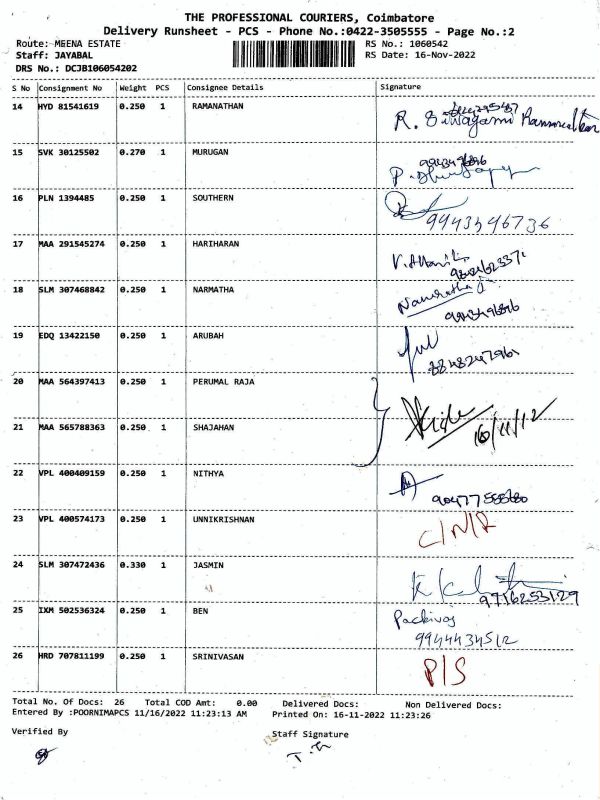 THE PROFESSIONAL COURIERS, Coimbatore
Delivery Runsheet - PCS - Phone No.:0422-3505555 - Page No.:2
Route: MEENA ESTATE
Staff: JAYABAL
DRS No.: DCJB106054202
RS No.: 1060542
RS Date: 16-Nov-2022
S No Consignment No Weight PCS Consignee Details Signature
14 HYD 81541619 0.250 1 RAMANATHAN
R. Sivagami
15 SVK 30125502 0.270 1 MURUGAN
16 PLN 1394485 0.250 1 SOUTHERN
9943496736
17 MAA 291545274 0.250 1 HARIHARAN
18 SLM 307468842 0.250 1 NARMATHA
19 EDQ 13422150 0.250 1 ARUBAH
8848247961
20 MAA 564397413 0.250 1 PERUMAL RAJA
21 MAA 565788363 0.250 1 SHAJAHAN
16/11/12
22 VPL 400409159 0.250 1 NITHYA
23 VPL 400574173 0.250 1 UNNIKRISHNAN
C/N/R
24 SLM 307472436 0.330 1 JASMIN
9716253129
25 IXM 502536324 0.250 1 BEN
9944434512
26 HRD 707811199 0.250 1 SRINIVASAN P/S
Total No. Of Docs: 26 Total COD Amt: 0.00 Delivered Docs: Non Delivered Docs:
Entered By :POORNIMAPCS 11/16/2022 11:23:13 AM Printed On: 16-11-2022 11:23:26
Verified By Staff Signature